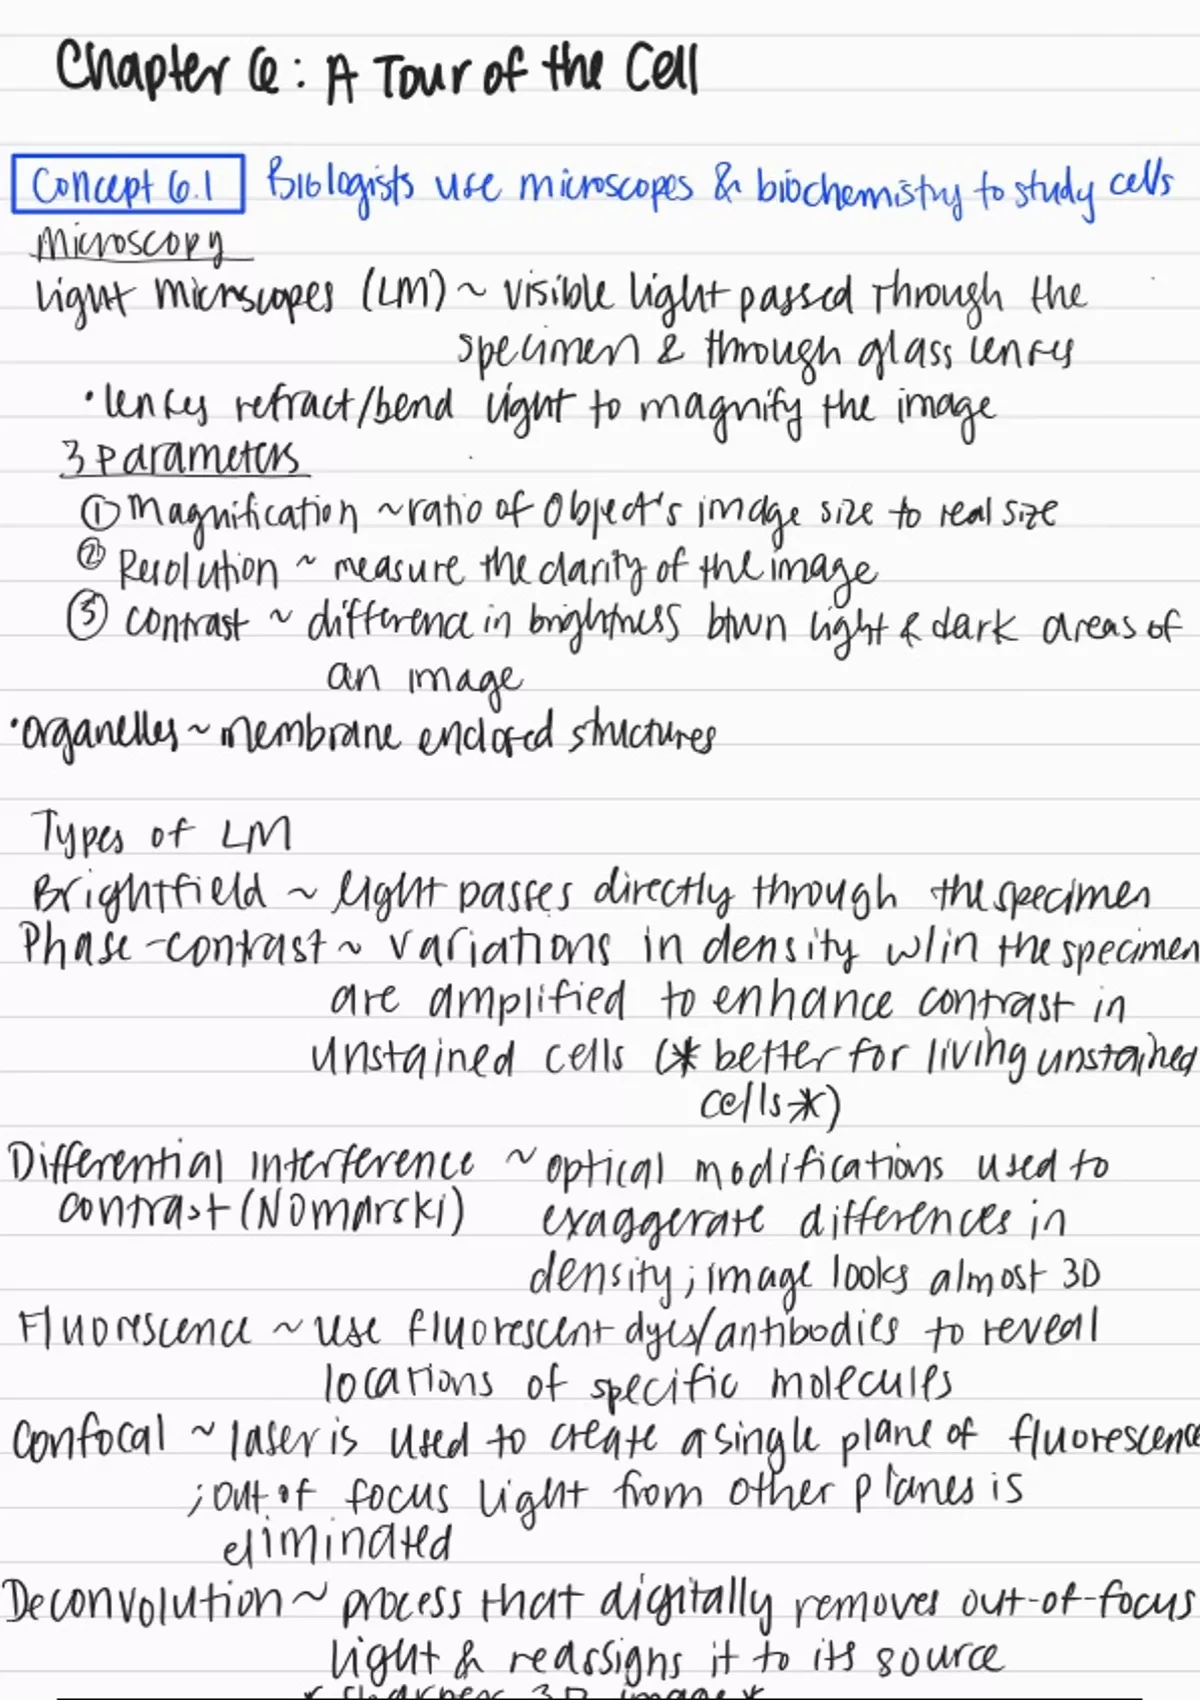 Chapter 6: A Tour of the Cell
Concept 6.1 Biologists use microscopes & biochemistry to study cells
Microscopy
Light Microscopes (LM) ~ visible light passed through the
specimen & through glass lenses
• lenses refract/bend light to magnify the image
3 parameters
① Magnification ~ ratio of Object's image size to real size
② Resolution ~ measure the clarity of the image
③ contrast ~ difference in brightness btwn light & dark areas of
an image
• organelles ~ membrane enclosed structures
Types of LM
Brightfield ~ light passes directly through the specimen
Phase-contrast ~ variations in density w/in the specimen
are amplified to enhance contrast in
unstained cells (* better for living unstained
cells*)
Differential interference ~ optical modifications used to
contrast (Nomarski) exaggerate differences in
density; image looks almost 3D
Fluorescence ~ use fluorescent dyes/antibodies to reveal
locations of specific molecules
Confocal ~ laser is used to create a single plane of fluorescence
; out of focus light from other planes is
eliminated
Deconvolution ~ process that digitally removes out-of-focus
light & reassigns it to its source
* sharpens 3D image *